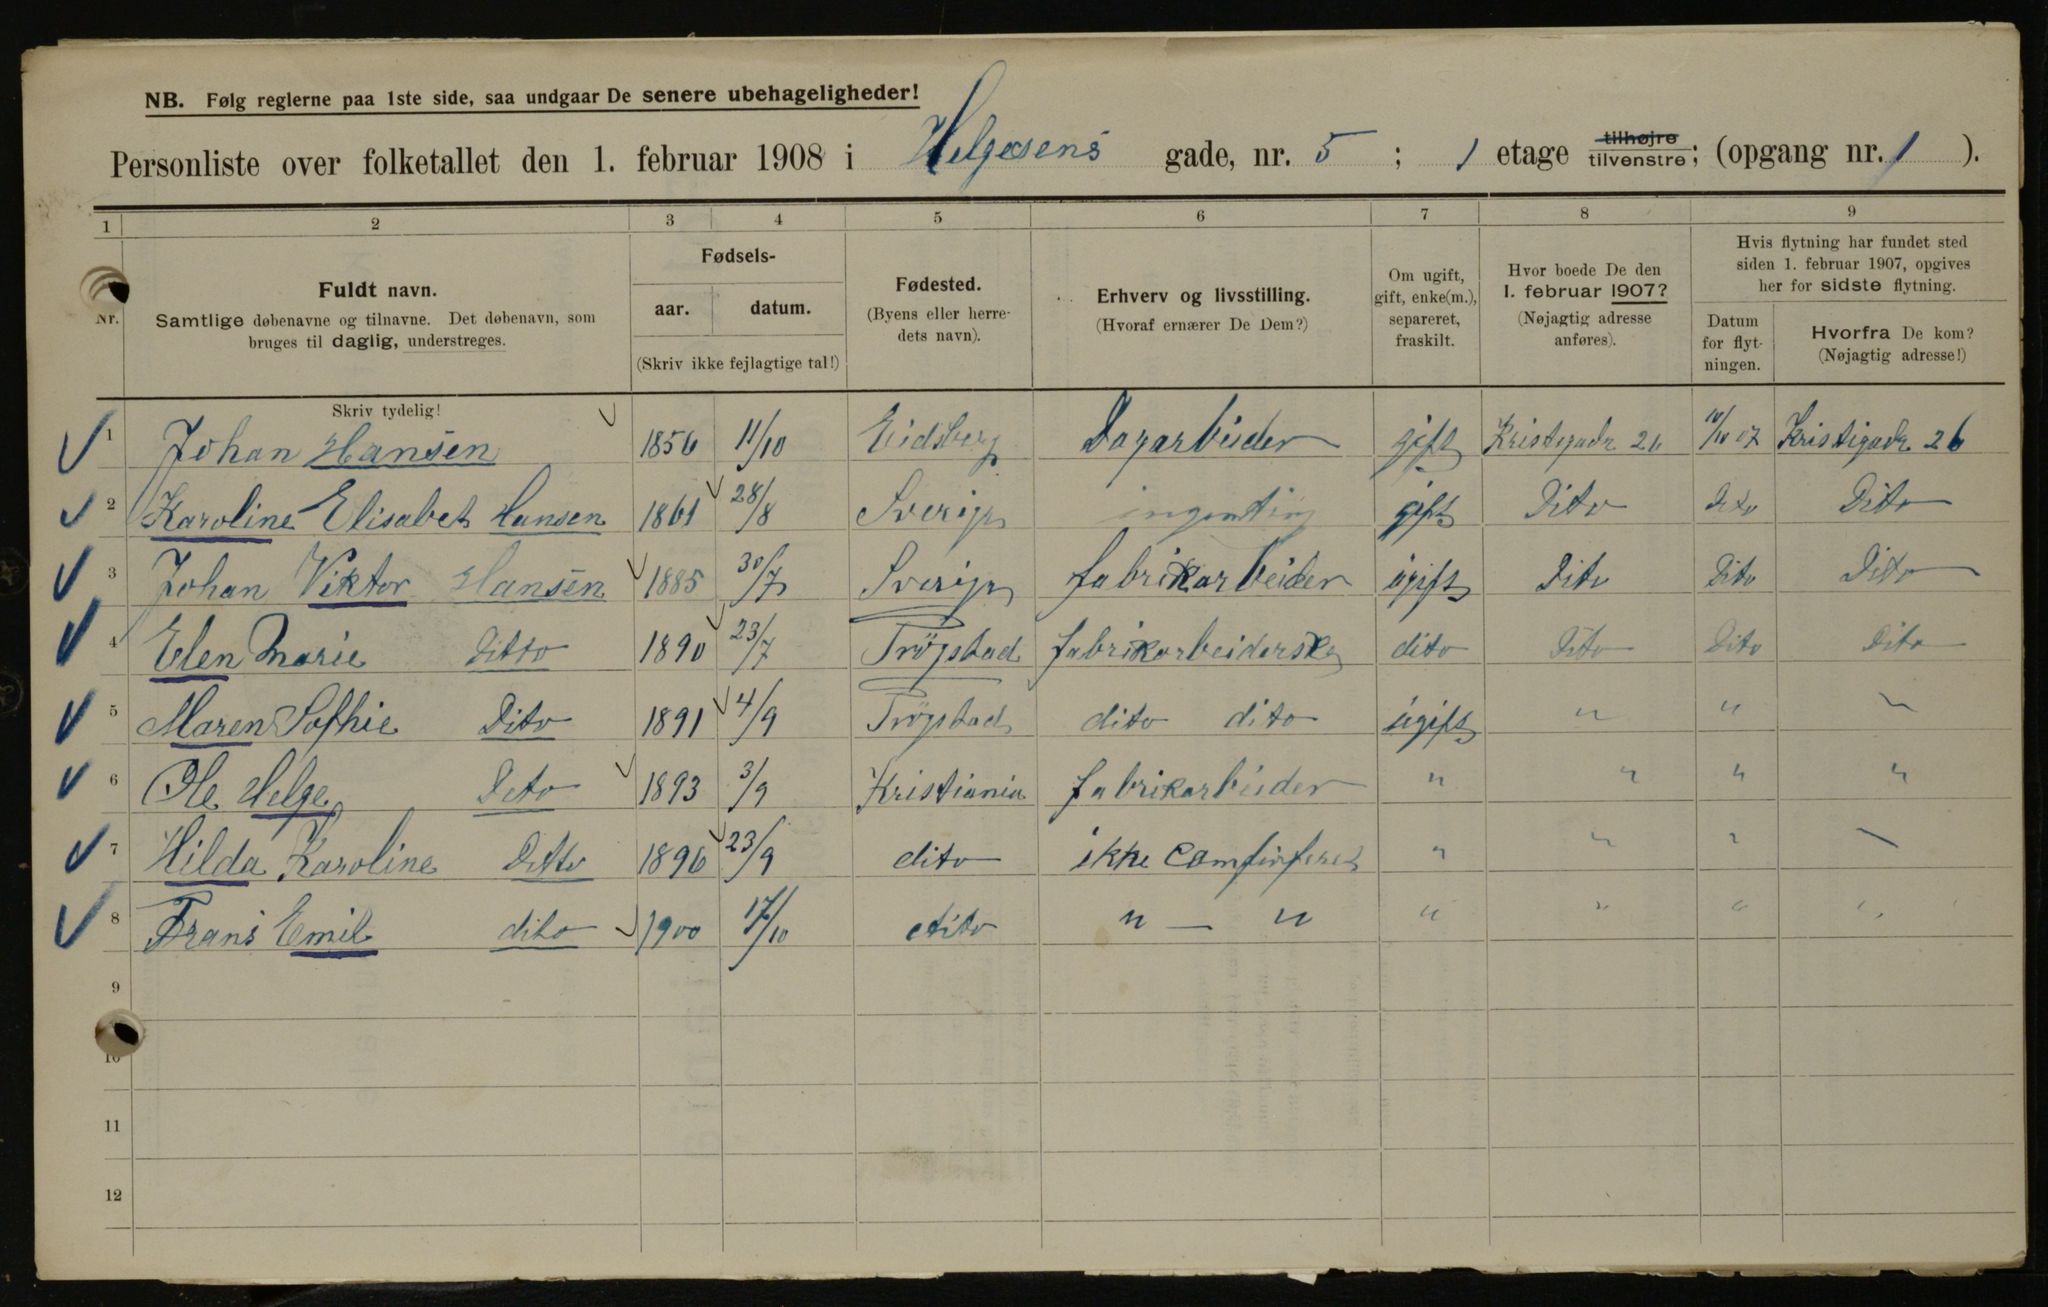 NB. Følg reglerne paa 1ste side, saa undgaar De senere ubehageligheder!
Personliste over folketallet den 1. februar 1908 i Helgesens gade, nr. 5 ; 1 etage tilhøjre tilvenstre; (opgang nr. 1 ).
1 2 3 4 5 6 7 8 9
Nr. Fuldt navn. Samtlige døbenavne og tilnavne. Det døbenavn, som bruges til daglig, understreges.
Fødsels- aar. datum. (Skriv ikke fejlagtige tal!)
Fødested. (Byens eller herredets navn).
Erhverv og livsstilling. (Hvoraf ernærer De Dem?)
Om ugift, gift, enke(m.), separeret, fraskilt.
Hvor boede De den 1. februar 1907? (Nøjagtig adresse anføres).
Hvis flytning har fundet sted siden 1. februar 1907, opgives her for sidste flytning.
Datum for flytningen.
Hvorfra De kom? (Nøjagtig adresse!)
Skriv tydelig!
1 Johan Hansen 1856 11/10 Eidsberg Dagarbeider gift Kristigade 26 10/10 07 Kristigade 26
2 Karoline Elisabet Hansen 1861 28/8 Sverige ingenting gift Dito Dito Dito
3 Johan Viktor Hansen 1885 30/7 Sverige fabrikarbeider ugift Dito Dito Dito
4 Elen Marie Ditto 1890 23/7 Trøgstad fabrikarbeiderske dito Dito Dito Dito
5 Maren Sofhie Dito 1891 4/9 Trøgstad dito dito ugift " " "
6 Ole Helge Dito 1893 3/9 Kristiania fabrikarbeider " " " "
7 Hilda Karoline Ditto 1896 23/9 dito ikke " " " "
8 Frans Emil dito 1900 17/10 dito " — " " " " "
9
10
11
12